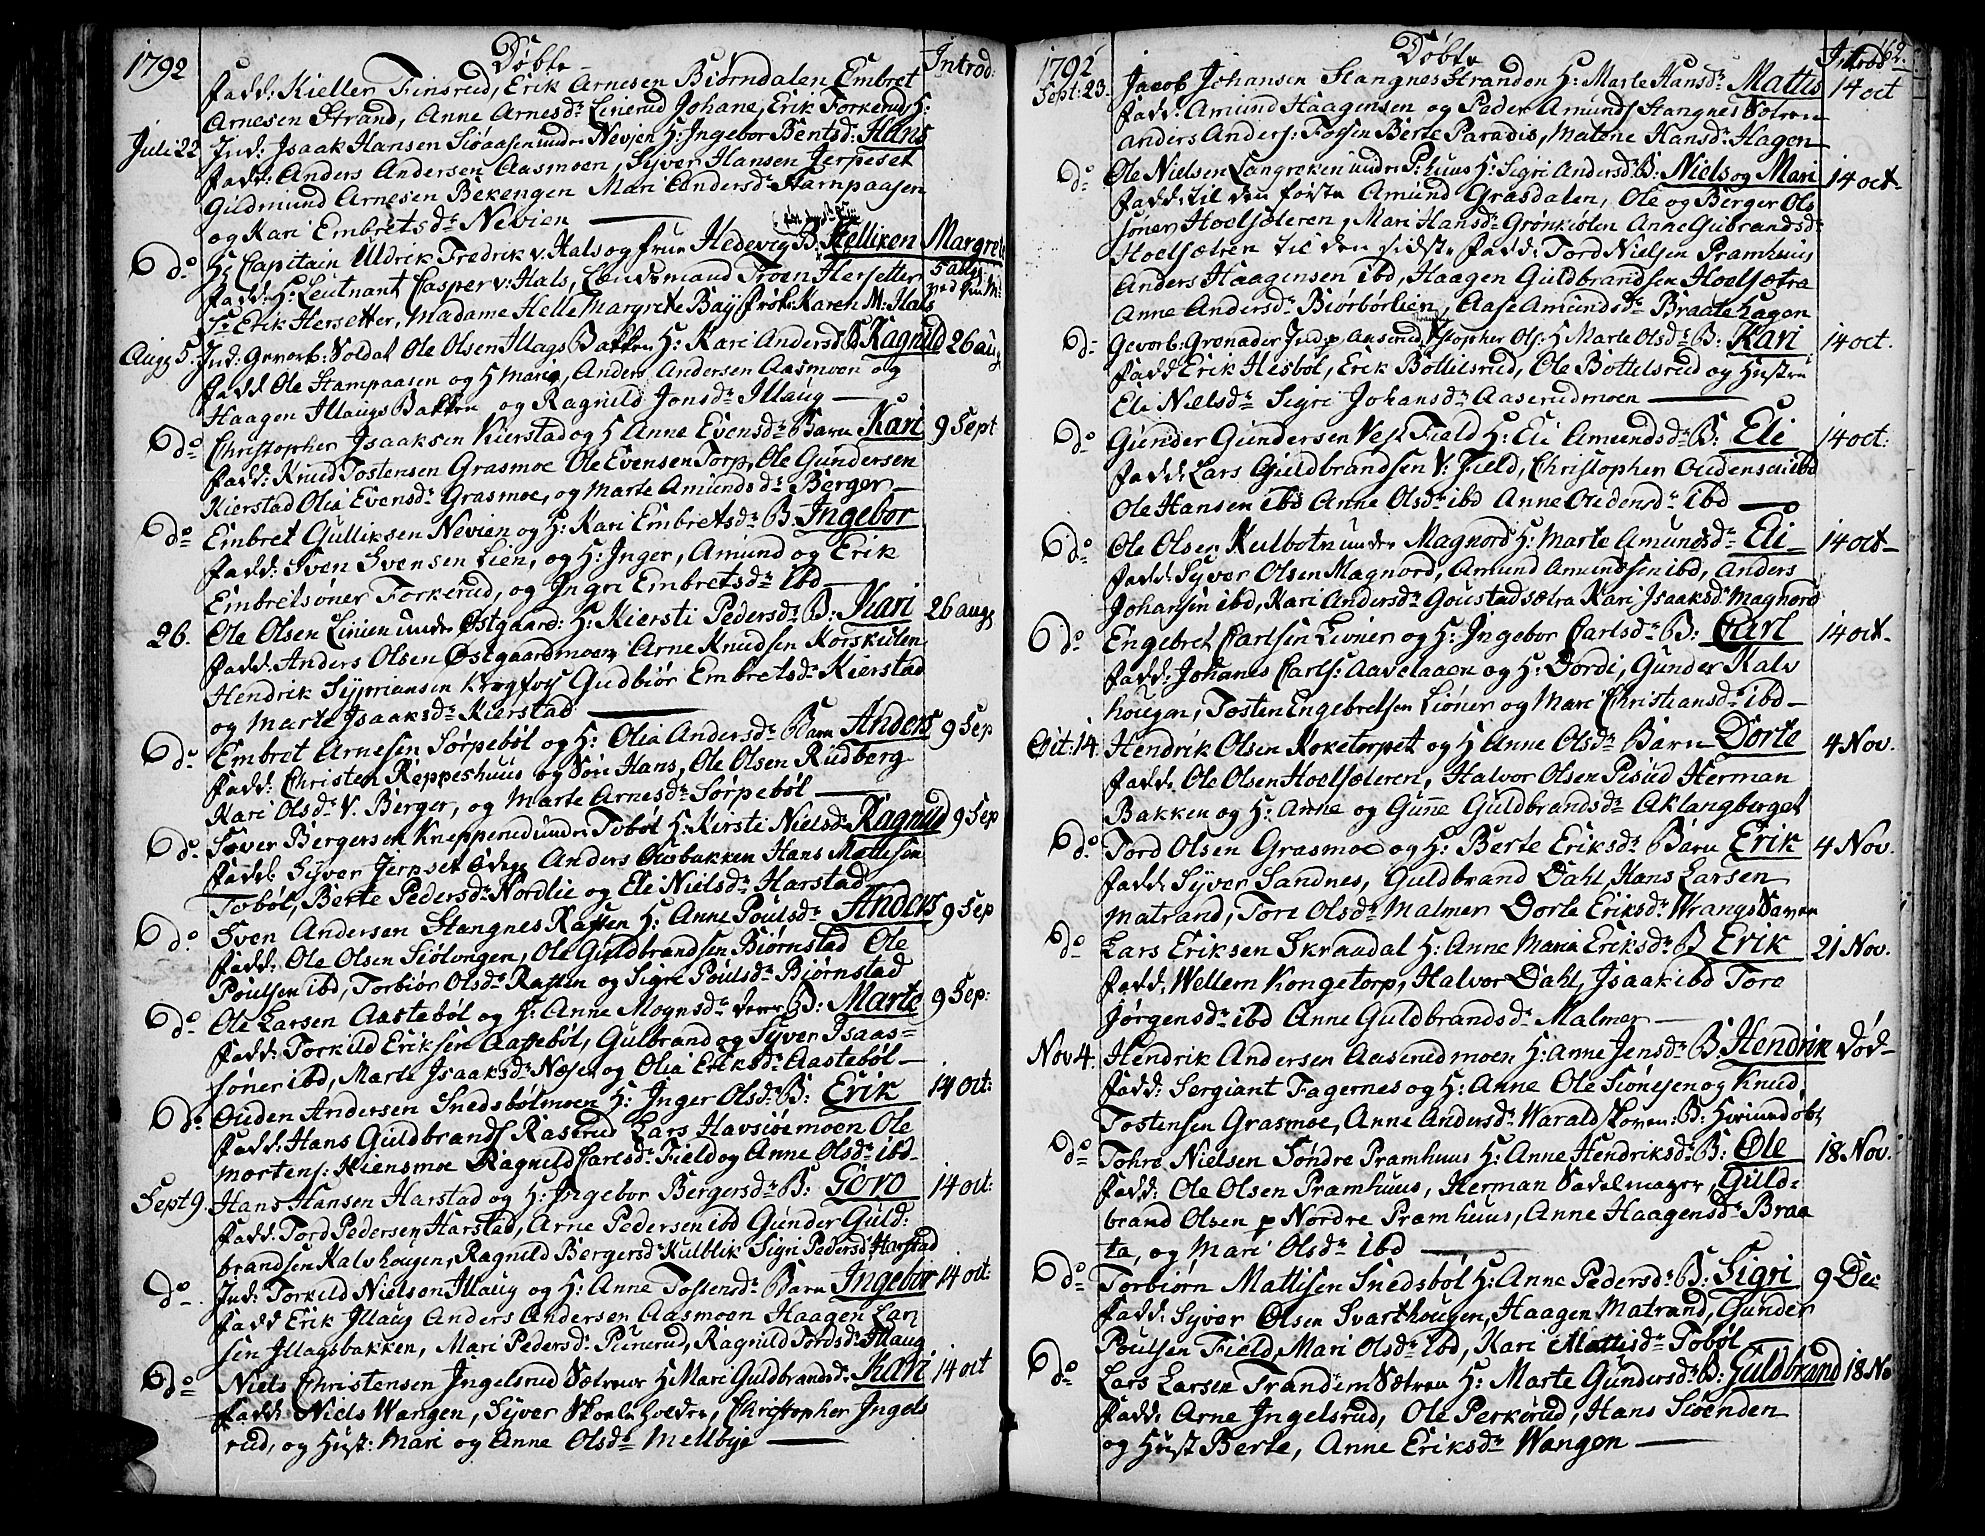 1792 Døbte Introd:
Fadd: Kieller Finsrud, Erik Arnesen Biørndalen, Embret
Arnesen Strand, Anne Arnesdr Linerud Johane, Erik Forkerud, H:
Juli 22 Ind: Isaak Hansen Siøaasen under Nevjen H: Ingebor Bentsd: Hans
Fadd: Anders Andersen Aasmoen, Syver Hansen Jerpeset
Gudmund Arnesen Bekengen Mari Andersdr Stampaasen
og Kari Embretsdr Nevien
do Hr Capitain Uldrik Fredrik v: Hals og frue Hedevig B. Helleken Margrete
Fadd: H: Leutnant Casper v: Hals, Lendsmand Troen Hersetter 5 aug:
Sr Erik Hersetter, Madame Helle Margrete Bay frøk: Karen M: Hals
Aug 5. Ind: Gevorb: Soldat Ole Olsen Illags Bakken H: Kari Andersd B Ragnild 26 aug
Fadd Ole Stampaasen og H Maria, Anders Andersen Aasmoen og
Haagen Illaugs Bakken og Ragnild Jonsdr Illaug
do Christopher Isaaksen Kierstad og H Anne Evensdr Barn Kari 9 Sept
Fadd: Knud Tostensen Grasmoe Ole Evensen Torp, Ole Gundersen
Kierstad Olia Evensdr Grasmoe, og Marte Amundsdr Berger
do Embret Gulliksen Nevien og H: Kari Embretsdr B. Ingebor
Fadd: Sven Svensen Lien, og H: Inger, Amund og Erik
Embretsøner Forkerud, og Ingri Embretsdr ibd
26. Ole Olsen Linien under Østgaard: H: Kiersti Pedersdr B: Kari 26 aug
Fadd: Anders Olsen Østgaardmoen, Arne Knudsen Korskiølen
Hendrik Sypriansen Krogfos Gudbiør Embretsdr Kierstad
og Marte Isaaksdr Kierstad
do Embret Arnesen Sørpebøl og H: Olia Andersdr Barn Anders 9 Sep
Fadd: Christen Reppeshuus og Søn Hans, Ole Olsen Rudberg
Kari Olsdr V. Berger, og Marte Arnesdr Sørpebøl
do Søver Bergersen Knepperud under Tobøl H: Kirsti Nielsdr Ragnild 9 Sep
Fadd: Syver Jerpset Anders Ousbakken Hans Mattisen
Tobøl, Berte Pedersdr Nordlie og Eli Nielsdr Harstad
do Sven Andersen Stangnes Ratten H: Anne Poulsdr Anders 9 Sep
Fadd: Ole Olsen Siølvongen, Ole Guldbrandsen Biørnstad Ole
Poulsen ibd, Torbiør Olsdr Ratten og Sigri Poulsdr Bjørnstad
do Ole Larsen Aastebøl og H: Anne Mognsdr B: Marte 9 Sep:
Fadd: Torkild Eriksen Aastebøl, Gulbrand og Syver Isaas=
søner ibd, Marte Isaaksdr Næsen og Olia Eriksdr Aastebøl
do Ouden Andersen Snedsbølmoen H: Inger Olsdr B: Erik 14 Oct:
Fadd: Hans Guldbrands Rasrud Lars Havsiøemoen Ole
Mortens: Kiensmoe Ragnild Carlsdr Field og Anne Olsdr ibd
Sept 9. Hans Hansen Harstad og H: Ingebor Bergersdr B: Goro 14 Oct:
Fadd: Tord Pedersen Harstad, Arne Pedersen ibd Gunder Guld:
brandsen Kalvhougen, Ragnild Bergersdr Kulblik Sigri Pedersd: Harstad
do Ind: Torkild Nielsen Illaug og H: Anne Tostensdr Barn Ingebor 14 Oct:
Fadd Erik Illaug Anders Andersen Aasmoen Haagen Lar
sen Illagsbakken, Mari Pedersd: Punerud, Ragnild Tordsdr Illaug
do Niels Christensen Ingelsrud Sætren H Mari Guldbrandsdr Kari 14 oct
Fadd: Niels Wangen, Syver Skoeleholder, Christopher Ingels
rud, og Hust: Mari og Anne Olsdr Mellbye
1792 Døbte Introd: 162.
Sept: 23. Jacob Johansen Stangnes Stranden H: Marte Hansdr Mattis 14 oct
Fadd: Amund Haagensen og Peder Amunds Stangnes Sætren
Anders Anders: Fossen Berte Paradis, Malene Hansdr Hagen
do Ole Nielsen Langreken under P:huus H: Sigri Andersd B: Niels og Mari 14 oct
Fadd: til den første Amund Grasdalen, Ole og Berger Ols
sønner Hoelsæteren, Mari Hansdr Grønkiølen Anne Gubrandsdr
Hoelsætren til den sidste Fadd: Tord Nielsen Pramhuus
Anders Haagensen ibd, Haagen Guldbrandsen Hoelsætra
Anne Andersdr Biørbørlien, Aase Amundsdr Braatehagen
do Gevorb: Grenader Ind: p Anserud Kstopher Ols: H Marte Olsdr B: Kari 14 oct.
Fadd Erik Hesbøl, Erik Bottelsrud, Ole Bottelsrud og Hustru
Eli Nielsdr Sigri Johansdr Aaserudmoen
do Gunder Gundersen Vest Field H: Eli Amundsdr B: Eli 14 oct:
Fadd: Lars Guldbrandsen V: Field, Christopher Oudensen ibd
Ole Hansen ibd Anne Olsdr ibd Anne Oudensdr ibd
do Ole Olsen Kulbotn under Magnord H: Marte Amundsdr Eli 14 oct
Fadd: Syver Olsen Magnord, Amund Amundsen ibd, Anders
Johansen ibd, Kari Andersdr Goustadsætra Kari Isaaksdr Magnord
do Engebret Carlsen Liøner og H: Ingebor Carlsdr B: Carl 14 oct
Fadd: Johanes Carls: Aavelaaen og H: Dordi, Gunder Kalv
hougen, Tosten Engebretsen Liøner og Mari Christiansdr ibd
Oct: 14. Hendrik Olsen Koketorpet og H Anne Olsdr Barn Dorte 4 Nov.
Fadd: Ole Olsen Hoelsæteren, Halvor Olsen Pisud Herman
Bakken og H: Anne og Gunne Guldbrandsdr Aklangberget
do Tord Olsen Grasmoe og H: Berte Eriksdr Barn Erik 4 Nov.
Fadd: Syver Sandnes, Guldbrand Dahl, Hans Larsen
Matrand, Tore Olsdr Malmer Dorte Eriksdr Wrangs Sæven
do Lars Eriksen Skraadal H: Anne Maria Eriksdr B Erik 21 Nov.
Fadd: Wellem Kongetorp, Halvor Dahl, Isaak ibd Tore
Jørgensdr ibd Anne Guldbrandsdr Malmer
Nov 4. Hendrik Andersen Aaserudmoen H: Anne Jensdr B. Hendrik Død
Fadd: Sergiant Fagernes og H: Anne Ole Siønesen og Knud
Tostensen Grasmoe, Anne Andersdr Waraldskoven: B: Hiemdøbt
do Tohre Nielsen Søndre Pramhuus H: Anne Hendriksdr B: Ole 18 Nov.
Fadd: Ole Olsen Pramhuus, Herman Sadelmager, Guld=
brand Olsen p Nordre Pramhuus, Anne Haagensdr Braa
ta, og Mari Olsdr ibd
do Torbiørn Mattisen Snedsbøl H: Anne Pedersdr B: Sigri 9 Dec
Fadd: Syver Olsen Svarthougen, Haagen Matrand, Gunder
Poulsen Field, Mari Olsdr ibd, Kari Mattisdr Tobøl
do Lars Larsen Trandem Sætren H: Marte Gundersdr B: Guldbrand 18 No
Fadd: Arne Ingelsrud, Ole Perkerud, Hans Siøenden
og Hust Berte, Anne Eriksdr Wangen